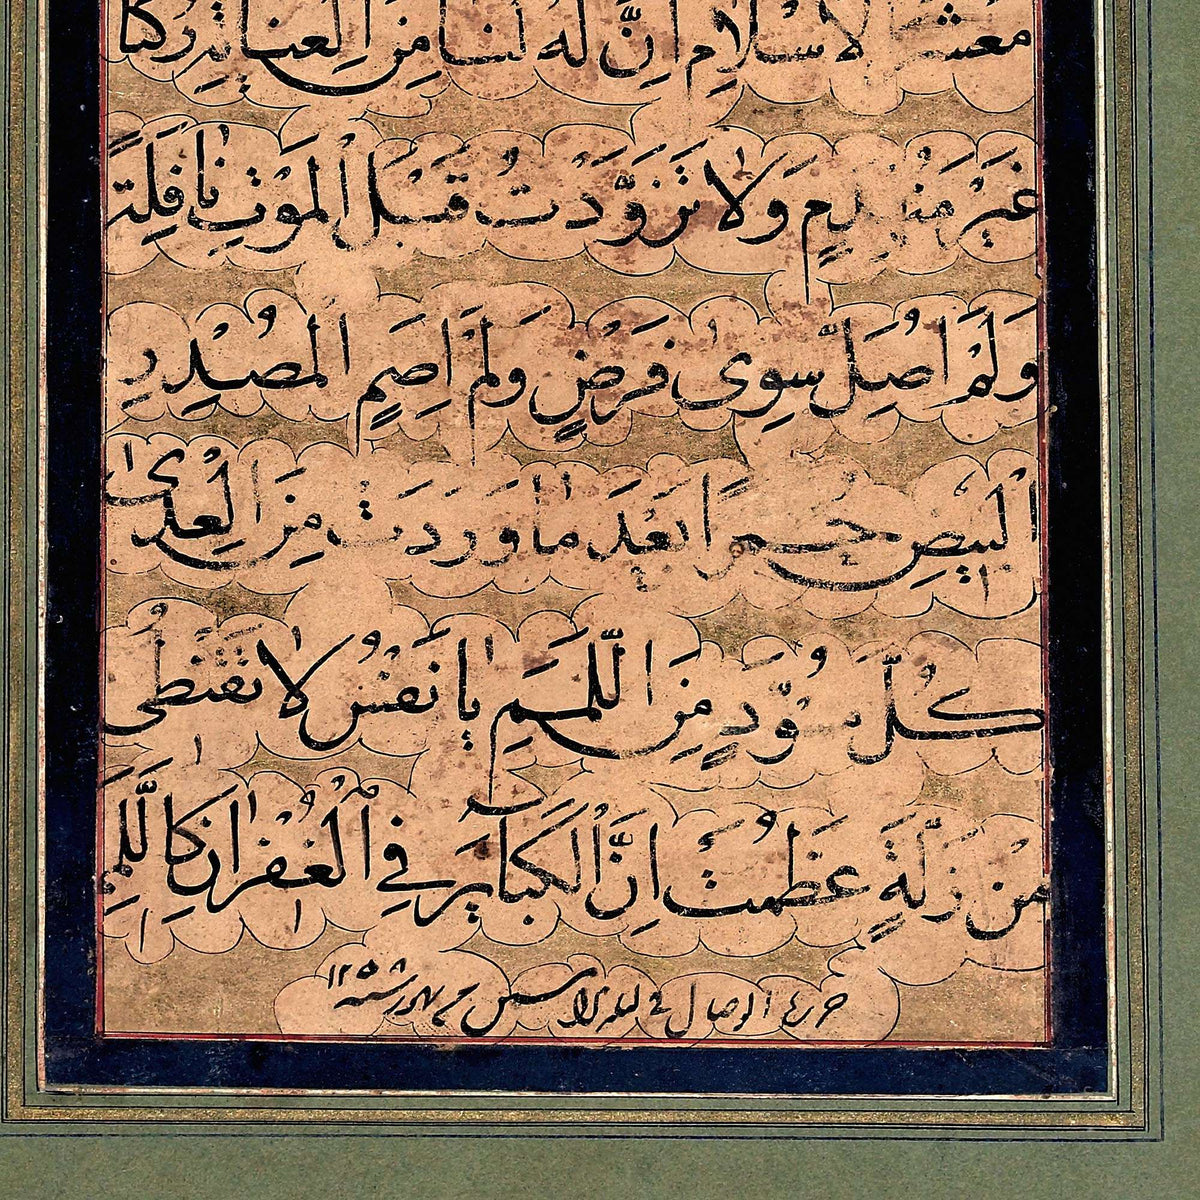 معشر الاسلام اِنَّ لَهُ لنا مِنَ العناية ركنا
غَيْرَ منهدمٍ وَلا تَزَوَّدْتُ قَبْلَ الْمَوْتِ نافِلَةً
وَلَمْ اُصَلِّ سِوى فَرْضٍ وَلَمْ اَصِمٍ المُصْدِرِ
الْبِيضِ حُمراً بَعْدَ ما وَرَدَتْ مِنَ الْعِدى
كُلَّ مُسْوَدٍّ مِنَ اللِّمَمِ يا نَفْسُ لا تَقْنَطى
مِنْ زَلَّةٍ عَظُمَتْ اِنَّ الْكَبائِرَ فِي الْغُفْرانِ كَاللَّمَمِ
حرره الوصال في ١٢٥